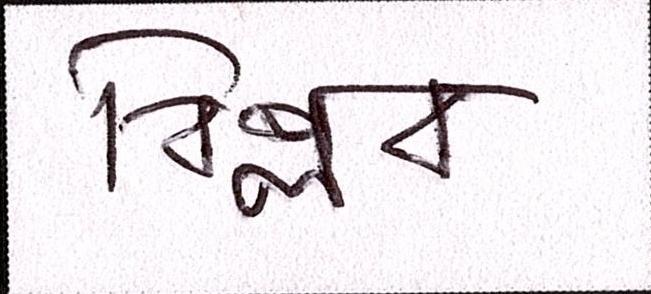 বিপ্লব